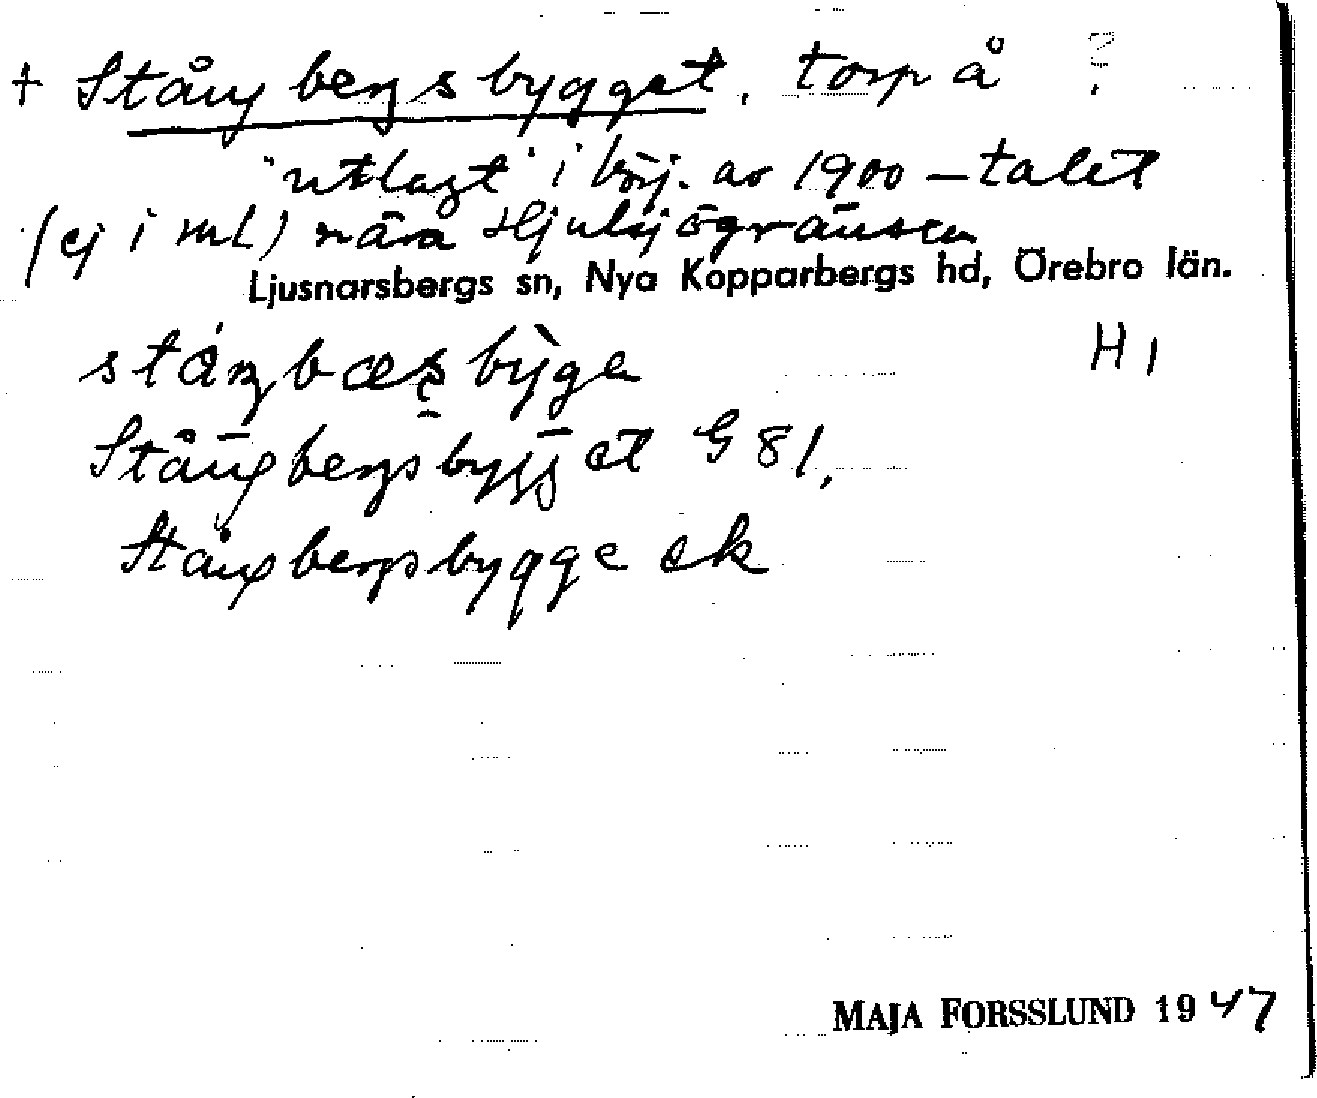 + Stångbergsbygget, torp å ?
"utlagt" i börj. av 1900-talet
(ej i ml) nära Hjulsjögränsen
Ljusnarsbergs sn, Nya Kopparbergs hd, Örebro län.
H 1
Stångbergsbygget G 81,
Stångbergsbygge ek
MAJA FORSSLUND 1947